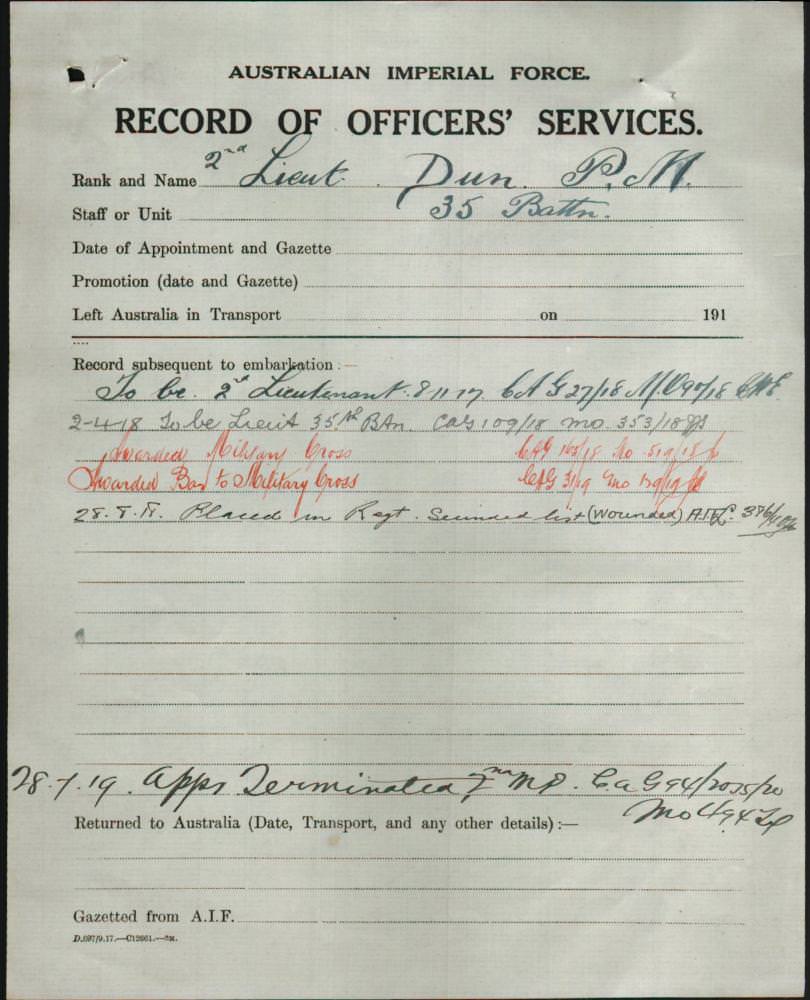 AUSTRALIAN IMPERIAL FORCE.
RECORD OF OFFICERS' SERVICES.
Rank and Name 2nd Lieut. Dun P.M.
Staff or Unit 35 Battn.
Date of Appointment and Gazette
Promotion (date and Gazette)
Left Australia in Transport on 191
Record subsequent to embarkation:—
To be 2nd Lieutenant. 8-11-17. C A G 27/18 M.O 90/18
2-4-18 To be Lieut 35th Btn. CAG 109/18 MO. 353/18
Awarded Military Cross CAG /18 MO 519/18
Awarded Bar to Military Cross CAG 31/19 MO 139/19
28.8.18. Placed in Regt. Seconded list (Wounded) A.I.F.
28.7.19. Appt Terminated, 2nd M.D. C.a.G 94/2035/20
Mo 494/20
Returned to Australia (Date, Transport, and any other details):—
Gazetted from A.I.F.
D.697/9.17.—C12661.—3M.